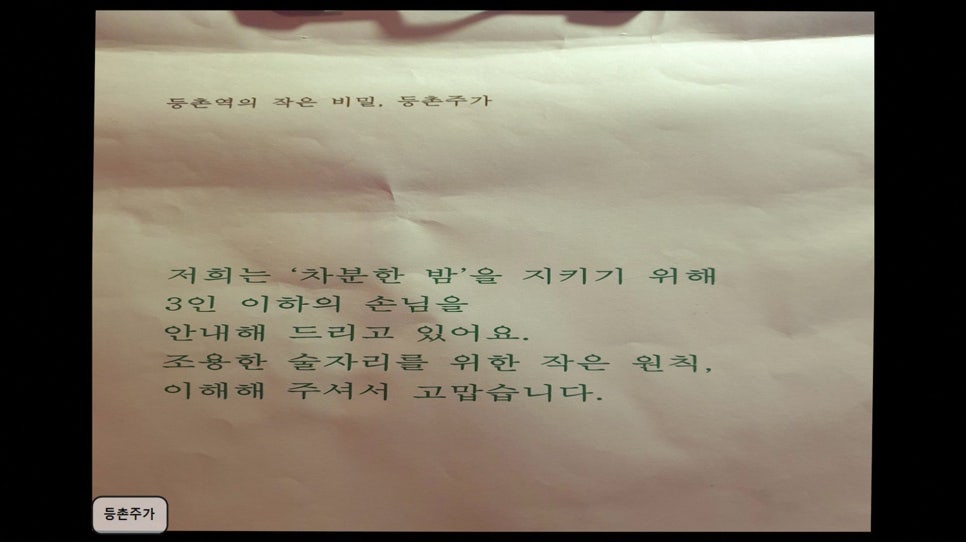 등촌역의 작은 비밀, 등촌주가
저희는 ‘차분한 밤’을 지키기 위해
3인 이하의 손님을
안내해 드리고 있어요.
조용한 술자리를 위한 작은 원칙,
이해해 주셔서 고맙습니다.
등촌주가